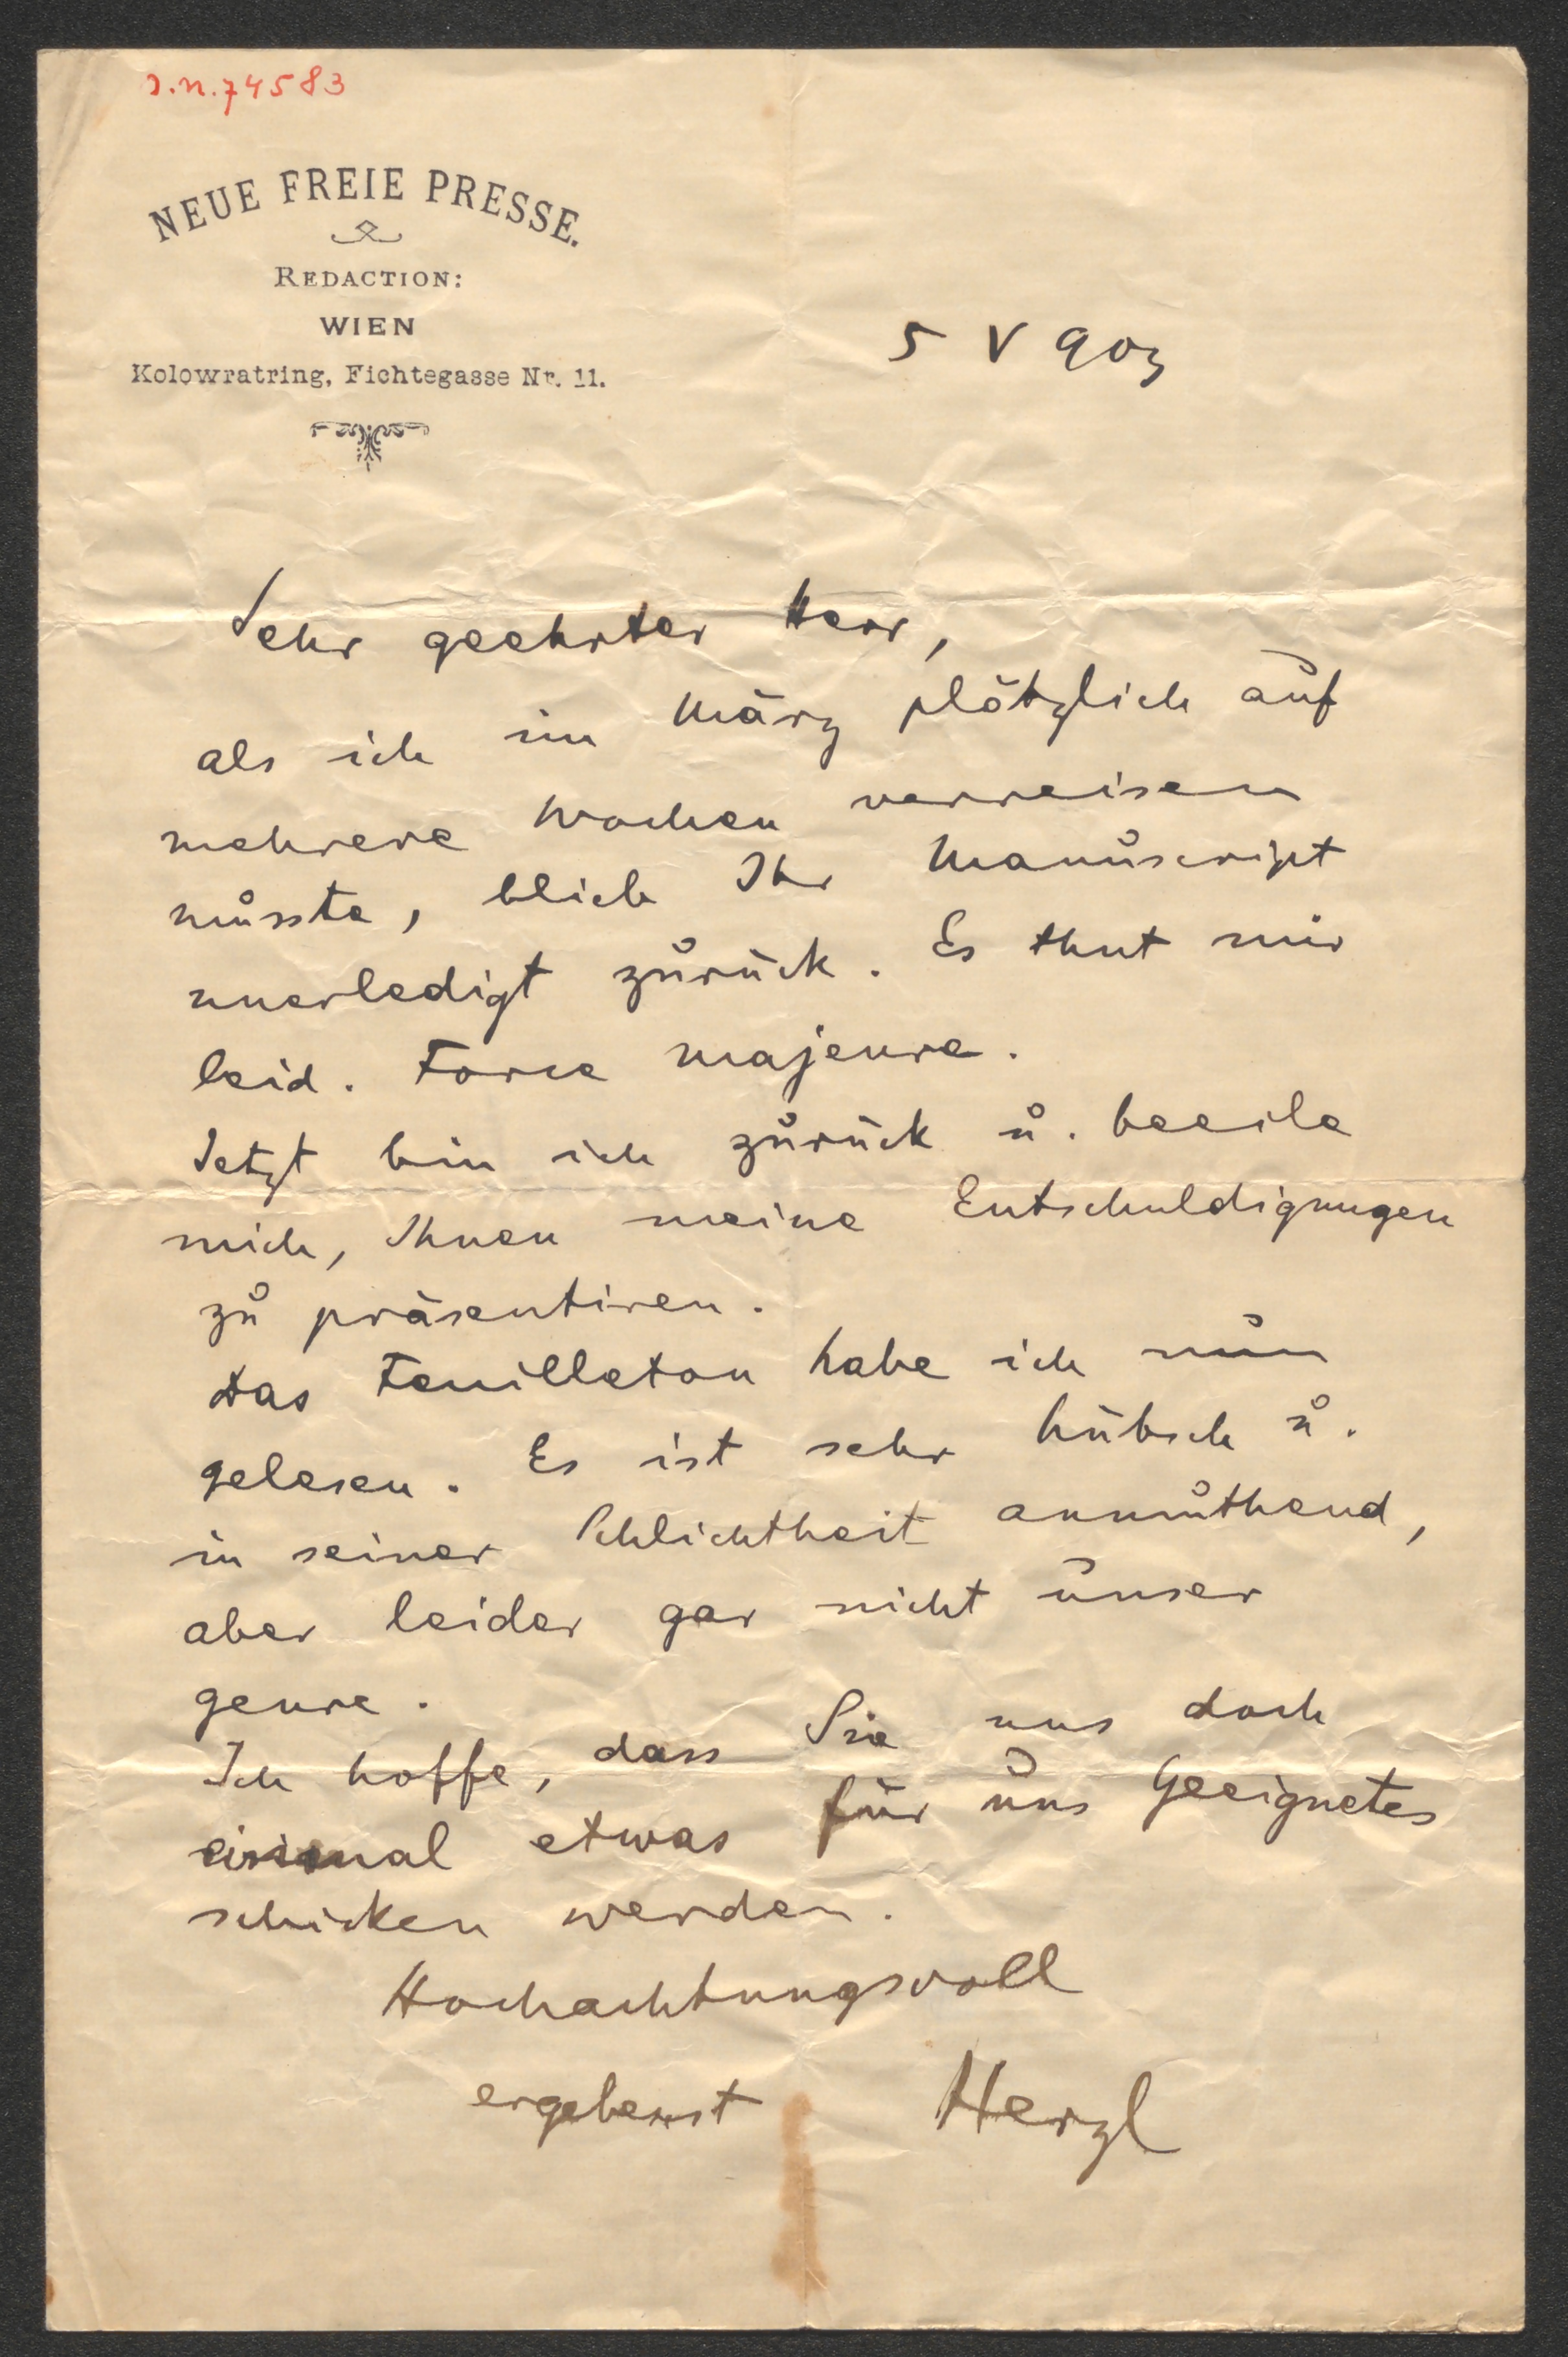 J.N.74583
NEUE FREIE PRESSE.
REDACTION:
WIEN
Kolowratring, Fichtegasse Nr. 11.
5 V 903
Sehr geehrter Herr,
als ich im März plötzlich auf
mehrere Wochen verreisen
musste, blieb Ihr Manuscript
unerledigt zurück. Es thut mir
leid. Force majeure.
Jetzt bin ich zurück u. beeile
mich, Ihnen meine Entschuldigungen
zu präsentiren.
Das Feuilleton habe ich nun
gelesen. Es ist sehr hübsch u.
in seiner Schlichtheit anmuthend,
aber leider gar nicht unser
genre.
Ich hoffe, dass Sie uns doch
einmal etwas für uns Geeignetes
schicken werden.
Hochachtungsvoll
ergebenst Herzl